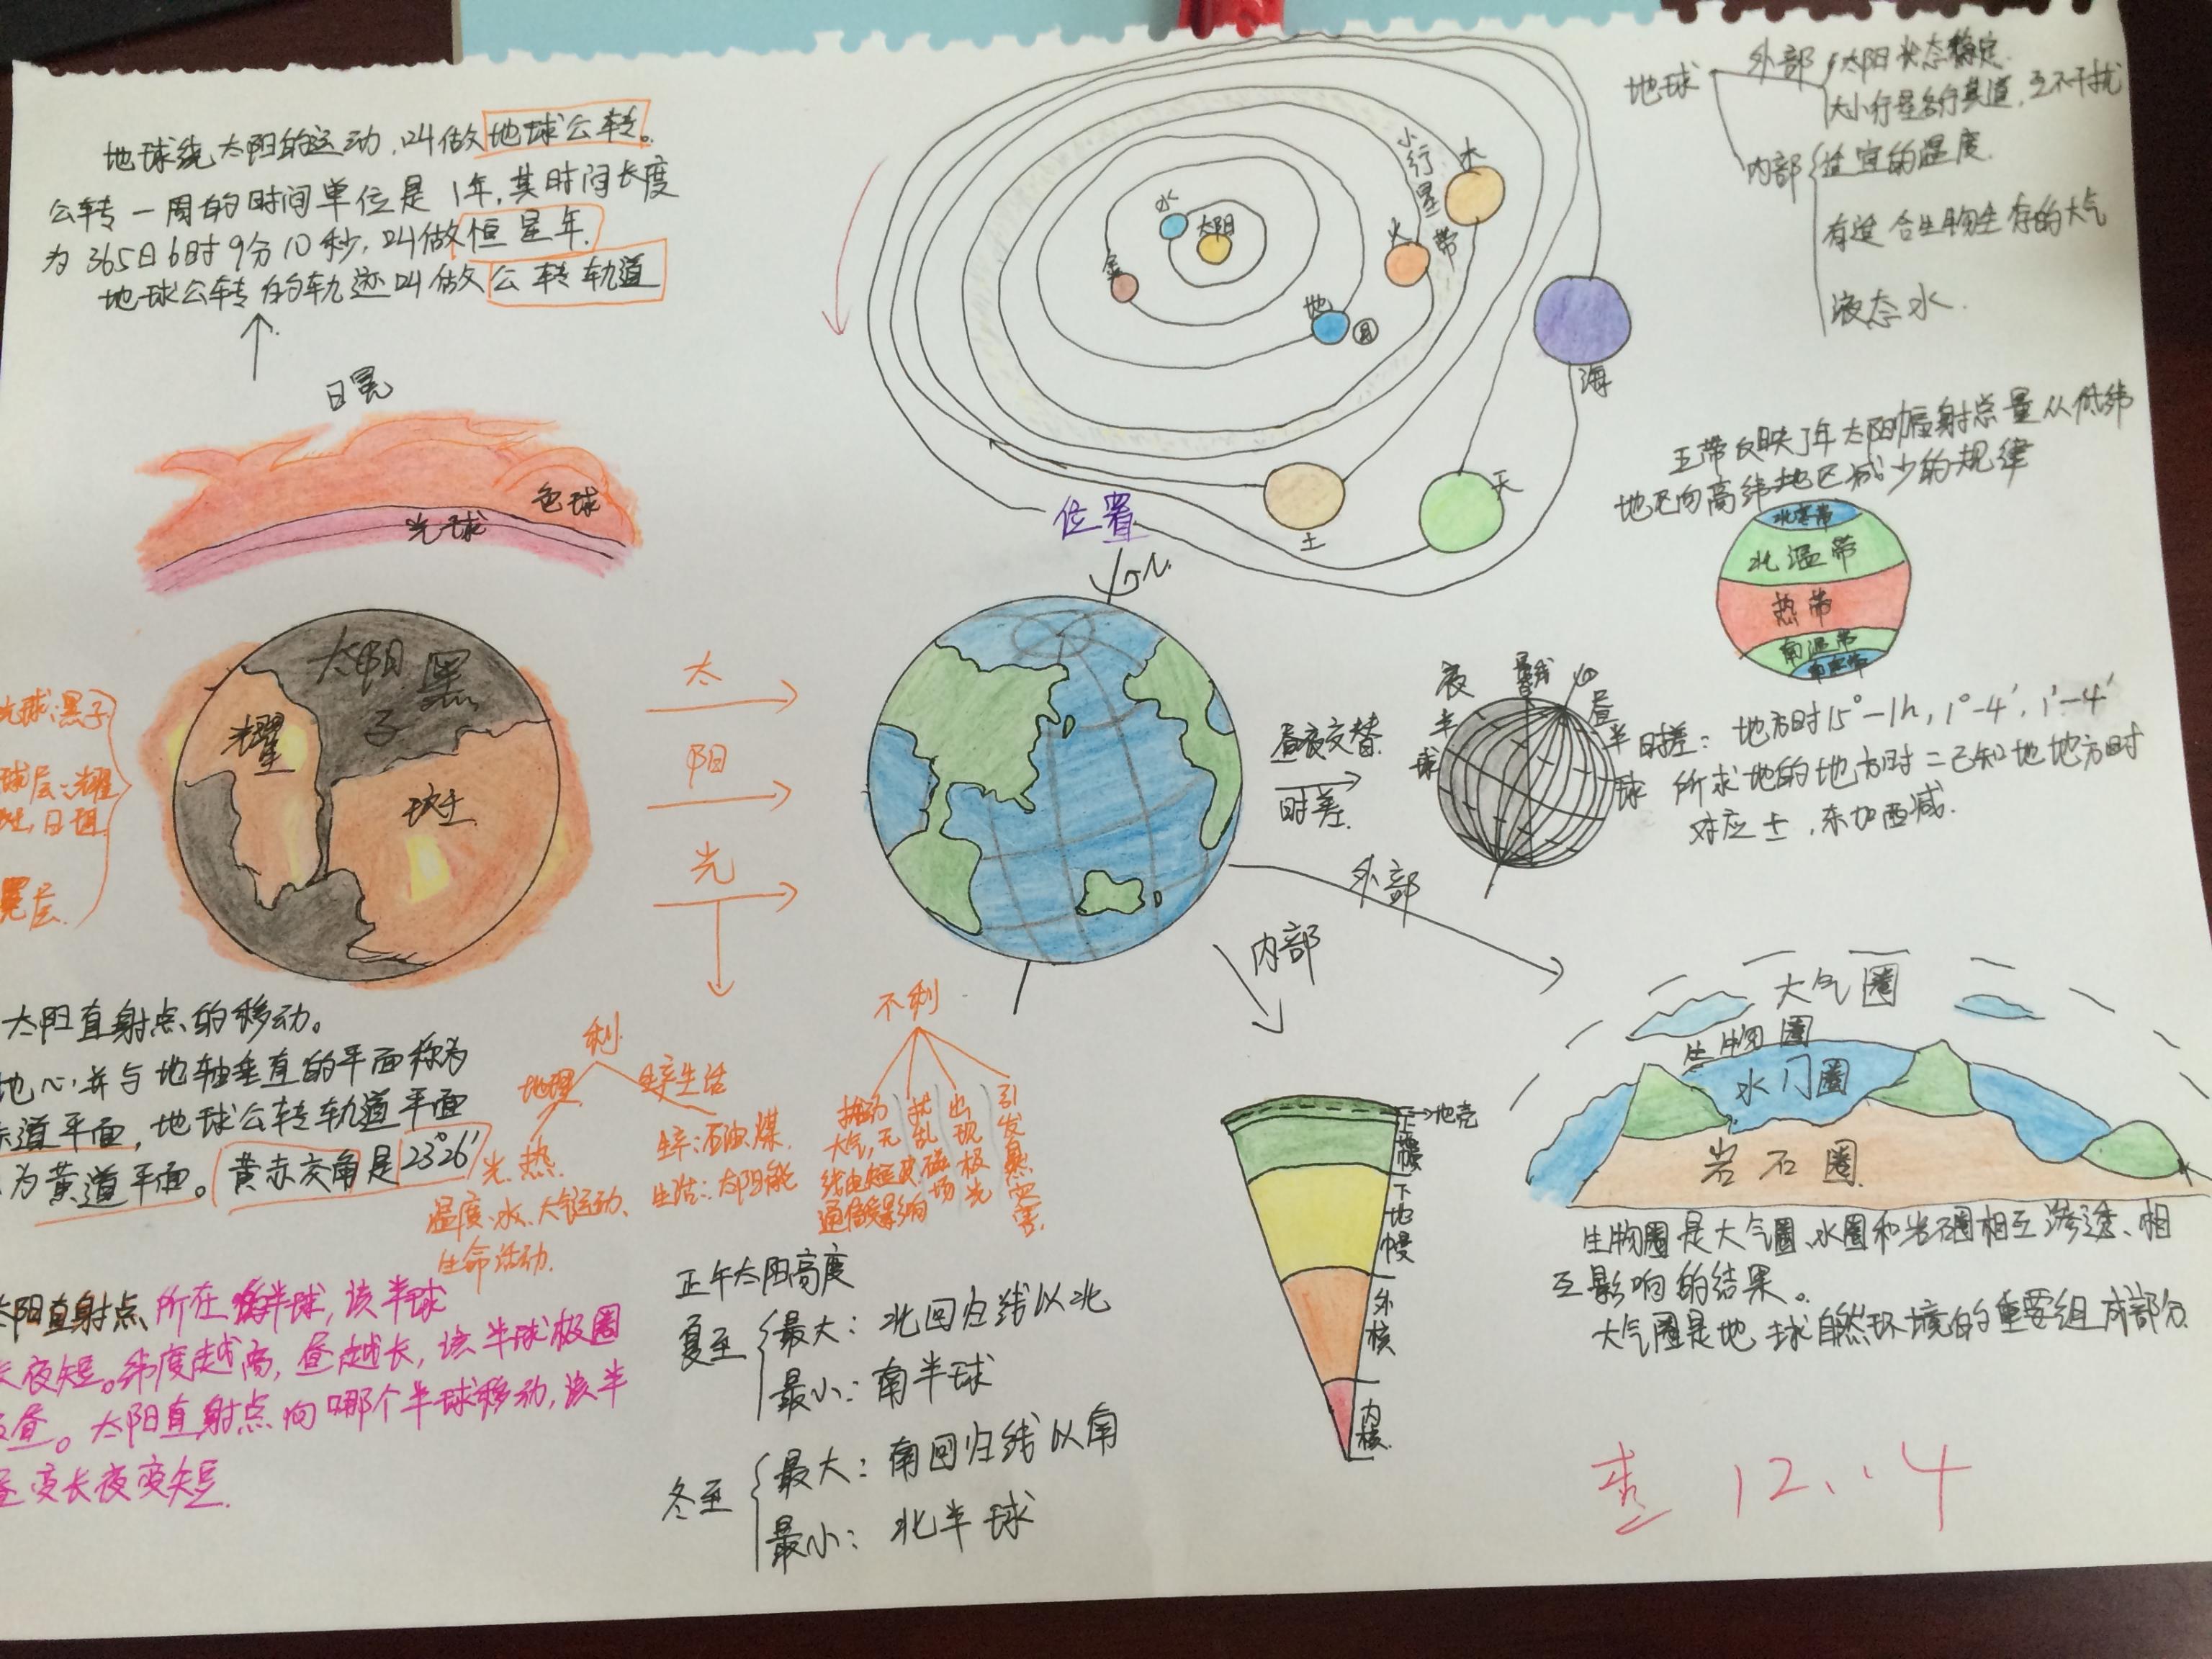 地球绕太阳的运动,叫做地球公转。
公转一周的时间单位是1年,其时间长度
为365日6时9分10秒,叫做恒星年.
地球公转的轨迹叫做公转轨道
日冕
色球
光球
太阳黑
子
耀
斑
光球:黑子
球层:耀
斑,日珥
冕层.
太
阳
光
太阳
水
金
地
月
火
小行星带
木
土
天
海
位置
地球
外部
太阳状态稳定.
大小行星各行其道,互不干扰
内部
适宜的温度.
有适合生物生存的大气
液态水.
五带反映了年太阳辐射总量从低纬
地区向高纬地区减少的规律
北寒带
北温带
热带
南温带
南寒带
昼夜交替.
时差.
夜半球
昼半球
时差:地方时15°-1h,1°-4′,1′-4″
所求地的地方时=已知地地方时
对应±,东加西减.
外部
内部
大气圈
生物圈
水门圈
岩石圈
生物圈是大气圈、水圈和岩石圈相互渗透、相
互影响的结果。
大气圈是地球自然环境的重要组成部分.
地壳
下地幔
外核
内核
太阳直射点的移动。
地心,并与地轴垂直的平面称为
赤道平面,地球公转轨道平面
为黄道平面。黄赤交角是23°26′
利
地理
生产生活
光.热.
温度、水、大气运动、
生命活动.
生产:石油.煤.
生活:太阳能
不利
扰动
大气,无
线电短波
通信受影响
扰乱磁场
出现极光
引发自然灾害.
太阳直射点所在半球,该半球
长夜短。纬度越高,昼越长,该半球极圈
昼。太阳直射点向哪个半球移动,该半
昼变长夜变短.
正午太阳高度
夏至
最大:北回归线以北
最小:南半球
冬至
最大:南回归线以南
最小:北半球
查 12..4